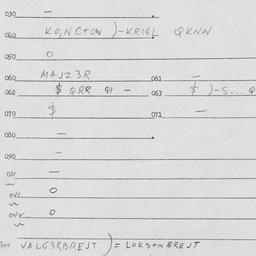 030 —
040 KO,NCTOW )-KRIGL QKNW
050 O
060 MAJZ3R 061 —
062 $ QRR QI — 063 $ )-S... Q
070 $ 071 —
080 —
090 —
O
O
VALG3RBREJT ) = LOKS+N BREJT